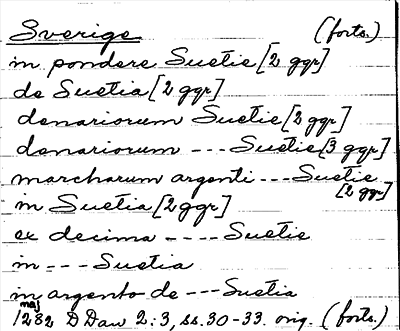 Sverige (forts.)
in pondere Suetie [2 ggr]
de Suetia [2 ggr]
denariorum Suetie [2 ggr]
denariorum --- Suetie [3 ggr]
marcharum argenti --- Suetie [2 ggr]
in Suetia [2 ggr]
ex decima ---- Suetie
in --- Suetia
in argento de --- Suetia
maj
1282 DDan 2:3, ss. 30-33. orig. (forts.)